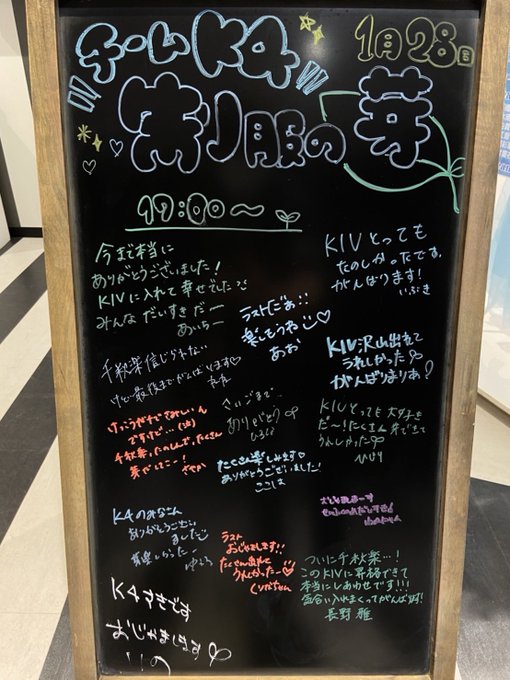 チームK4
1月28日
制服の芽
17:00〜
今まで本当に
ありがとうございました!
KIVに入れて幸せでした
みんな だいすき だー
あいちー
KIVとっても
たのしかったです。
がんばります!
いぶき
ラストだぁ!!
楽しもうね
あお
KIV沢山出れて
うれしかった
がんばりまりあ!
千秋楽信じれない
けど最後までがんばります♡
さいごまで
ありがとう
ひろか
けんきゅうせいで
千秋楽、たのしんで、たくさん
芽だしてこー!
さやか
たくさん楽しみます♡
ありがとうございました!
ここは
KIVとっても大好き
だ〜!たくさん
うれしかった
ひより
K4のみなさん
ありがとうござい
ました
ラスト
おじゃまします!!
たくさん
うれしかったー♡
おじゃましまーす
ついに千秋楽…!
このKIVに昇格できて
本当にしあわせです!!!
気合い入れまくってがんば
長野 雅
K4すきです
おじゃまします♡